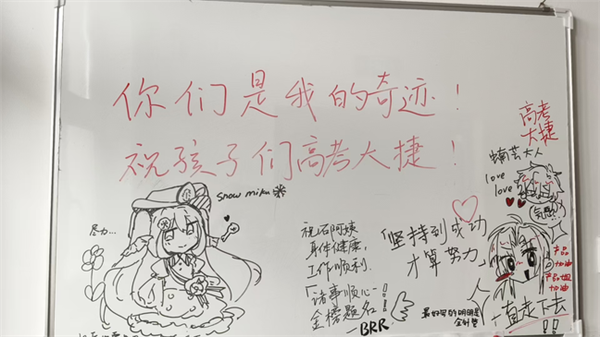 你们是我的奇迹！
祝孩子们高考大捷！
高考
大捷
snow miku
love
love
尽力...
祝石阿姨
身体健康，
工作顺利.
「诸事顺心
金榜题名!!
BRR
「坚持到成功
才算努力」
加油
加油
一直走下去
!!